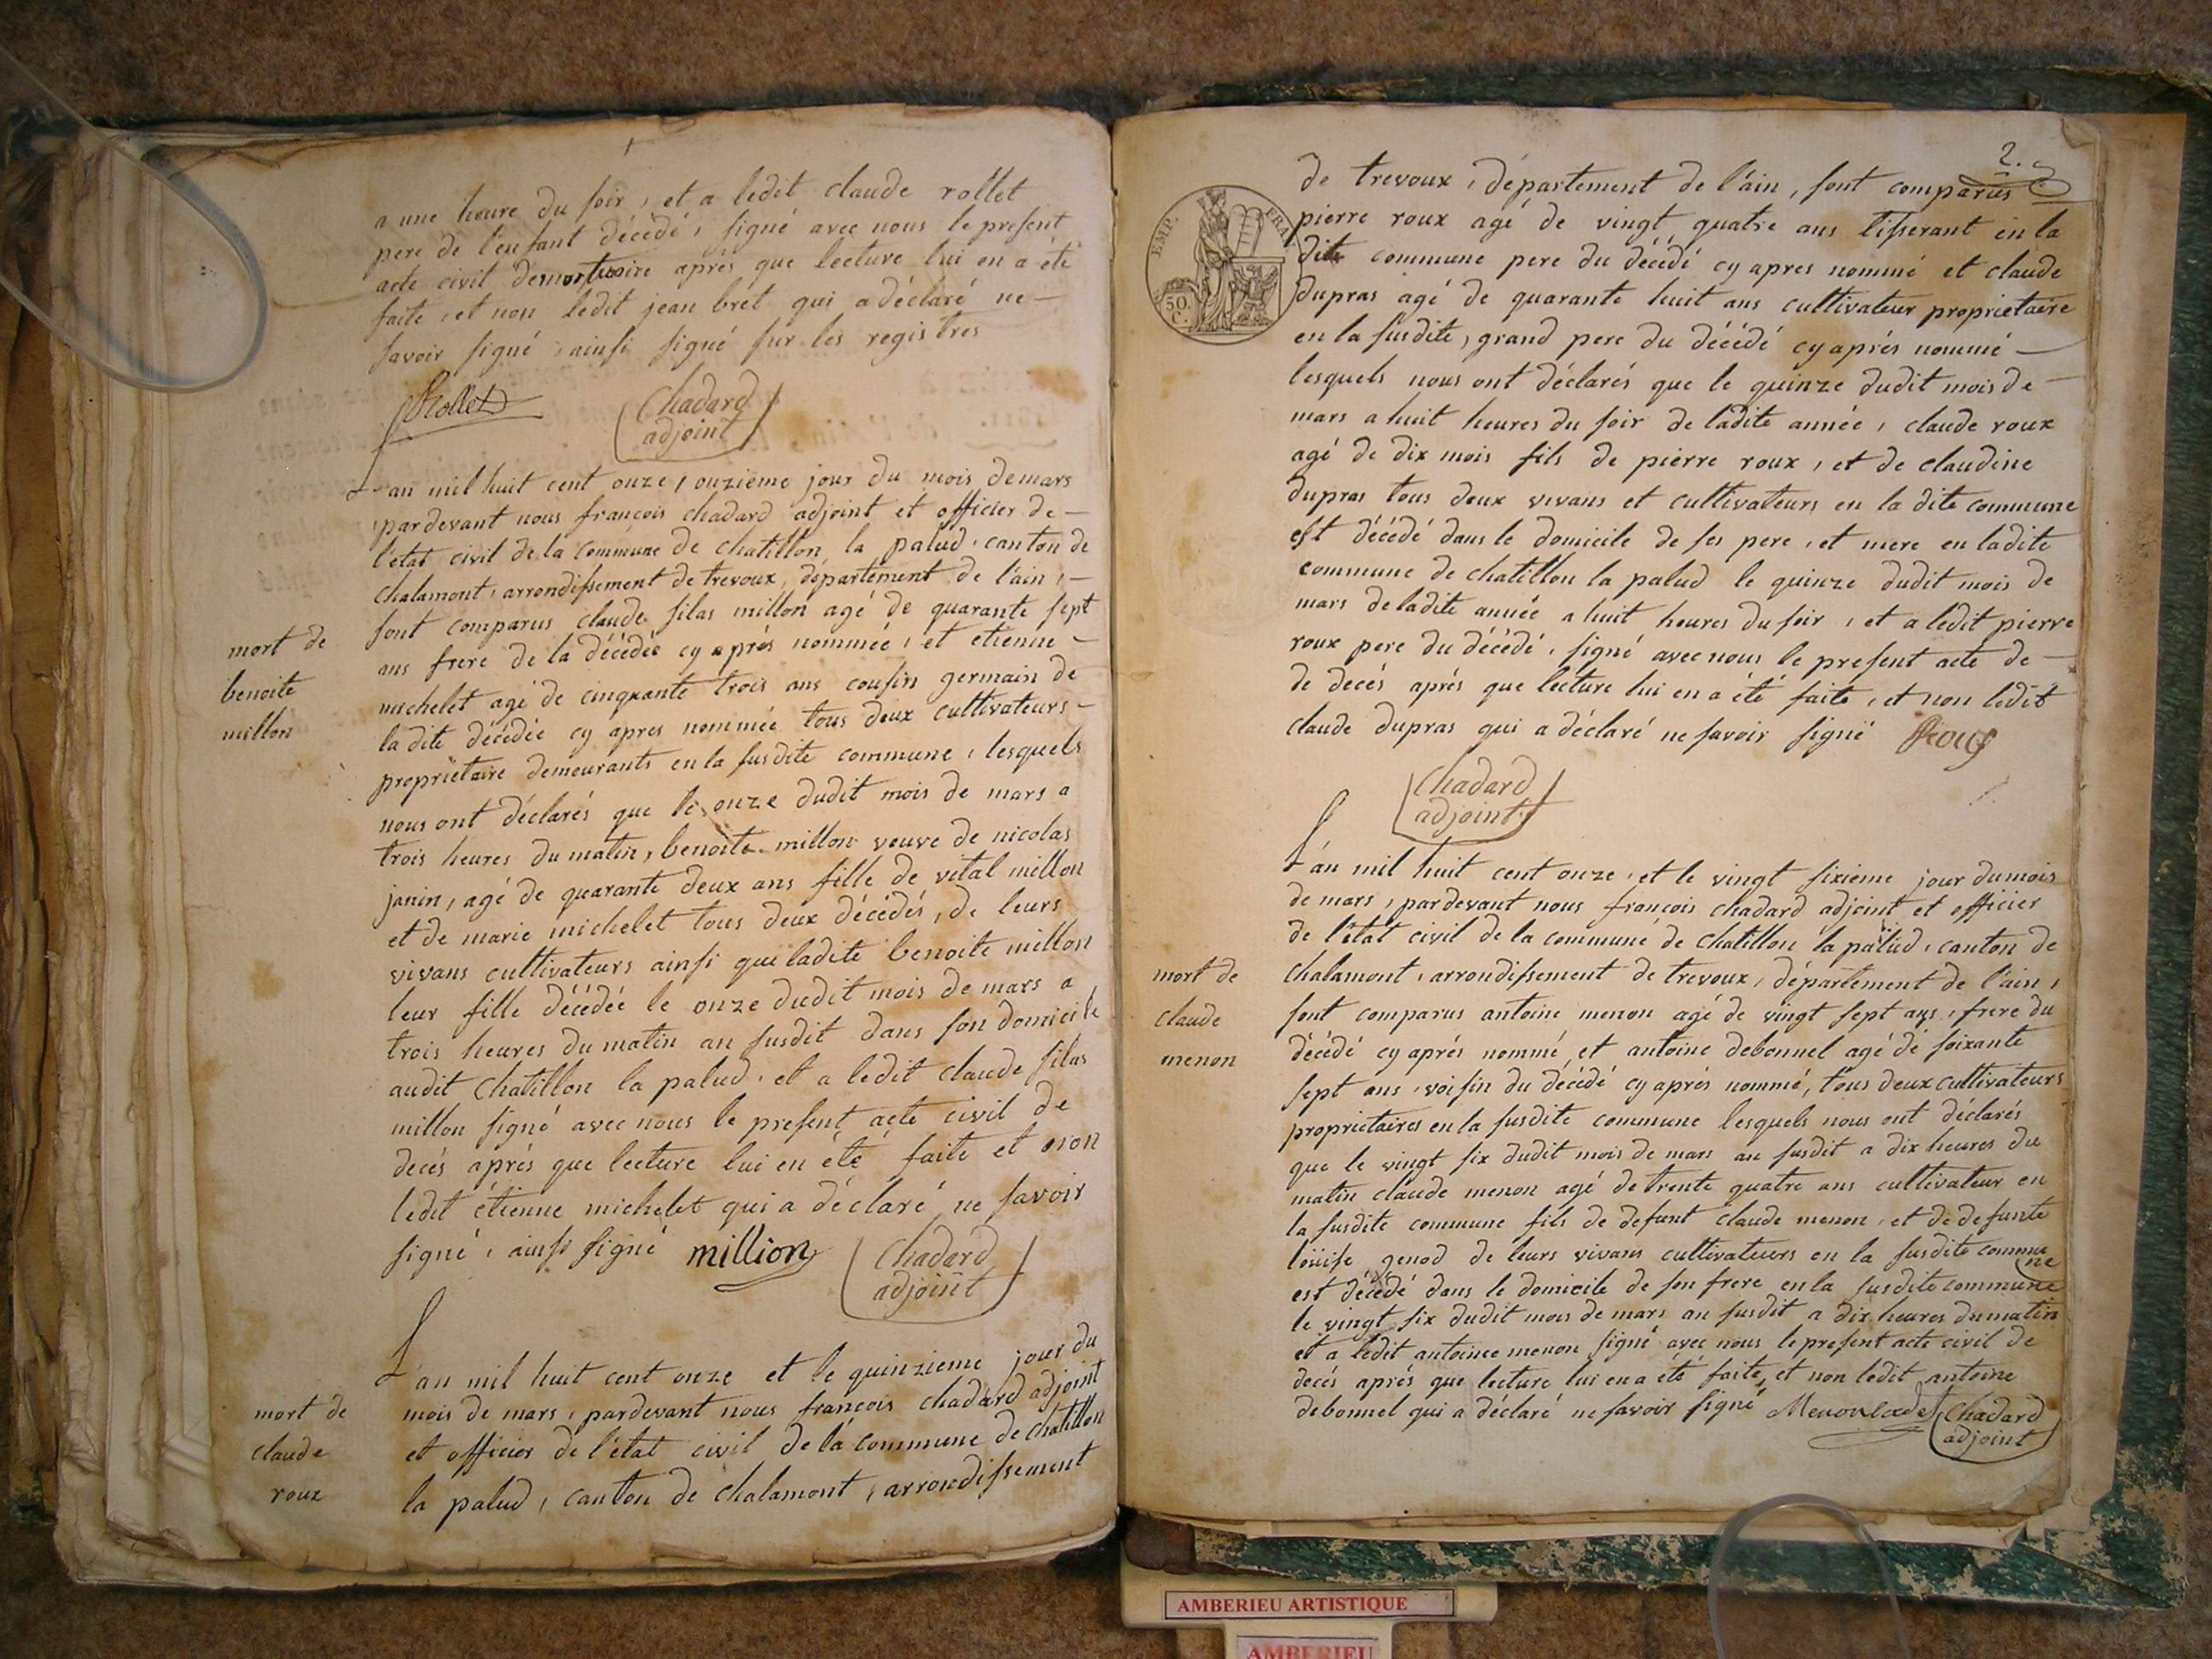 a une heure du soir, et a ledit claude rollet
pere de l'enfant décédé, signé avec nous le present
acte civil de mortuoire aprés que lecture lui en a été
faite, et non ledit jean bret qui a déclaré ne
savoir signé, ainsi signé sur les registres
Rollet
Chadard
adjoint
L'an mil huit cent onze, onzieme jour du mois de mars
pardevant nous francois chadard adjoint et officier de
l'etat civil de la commune de chatillon la palud, canton de
chalamont, arrondissement de trevoux, département de l'ain,
sont comparus claude silas millon agé de quarante sept
ans frere de la décédée cy aprés nommée, et etienne
michelet agé de cinquante trois ans cousin germain de
la dite décédée cy apres nommée tous deux cultivateurs
proprietaire demeurants en la susdite commune, lesquels
nous ont déclarés que le onze dudit mois de mars a
trois heures du matin, benoite millon veuve de nicolas
janin, agé de quarante deux ans fille de vital millon
et de marie michelet tous deux décédés, de leurs
vivans cultivateurs ainsi que ladite benoite millon
leur fille décédée le onze dudit mois de mars a
trois heures du matin an susdit dans son domicile
audit chatillon la palud, et a ledit claude silas
millon signé avec nous le present acte civil de
decés aprés que lecture lui en été faite et non
ledit étienne michelet qui a déclaré ne savoir
signé, ainsi signé million
Chadard
adjoint
mort de
benoite
millon
L'an mil huit cent onze et le quinzieme jour du
mois de mars, pardevant nous francois chadard adjoint
et officier de l'état civil de la commune de chatillon
la palud, canton de chalamont, arrondissement
mort de
claude
roux
2.
EMP. FRA
50
C.
de trevoux, département de l'ain, sont comparus
pierre roux agé de vingt quatre ans tisserant en la
dite commune pere du décédé cy apres nommé et claude
dupras agé de quarante huit ans cultivateur proprietaire
en la susdite, grand pere du décédé cy aprés nommé
lesquels nous ont déclarés que le quinze dudit mois de
mars a huit heures du soir de ladite année, claude roux
agé de dix mois fils de pierre roux, et de claudine
dupras tous deux vivans et cultivateurs en la dite commune
est décédé dans le domicile de ses pere, et mere en ladite
commune de chatillon la palud le quinze dudit mois de
mars de ladite année a huit heures du soir, et a ledit pierre
roux pere du décédé, signé avec nous le present acte de
de decés aprés que lecture lui en a été faite, et non ledit
claude dupras qui a déclaré ne savoir signé Roux
Chadard
adjoint
L'an mil huit cent onze, et le vingt sixieme jour du mois
de mars, pardevant nous francois chadard adjoint et officier
de l'état civil de la commune de chatillon la palud, canton de
chalamont, arrondissement de trevoux, département de l'ain,
sont comparus antoine menon agé de vingt sept ans, frere du
décédé cy aprés nommé, et antoine debonnel agé de soixante
sept ans, voisin du décédé cy aprés nommé, tous deux cultivateurs
proprietaires en la susdite commune lesquels nous ont déclarés
que le vingt six dudit mois de mars an susdit a dix heures du
matin claude menon agé de trente quatre ans cultivateur en
la susdite commune fils de defunt claude menon, et de defunte
loüise genod de leurs vivans cultivateurs en la susdite commune
est décédé dans le domicile de son frere en la susdite commune
le vingt six dudit mois de mars an susdit a dix heures du matin
et a ledit antoinee menon signé avec nous le present acte civil de
decés aprés que lecture lui en a été faite, et non ledit antoine
debonnel qui a déclaré ne savoir signé Menon
Chadard
adjoint
mort de
claude
menon
AMBERIEU ARTISTIQUE
AMBERIEU